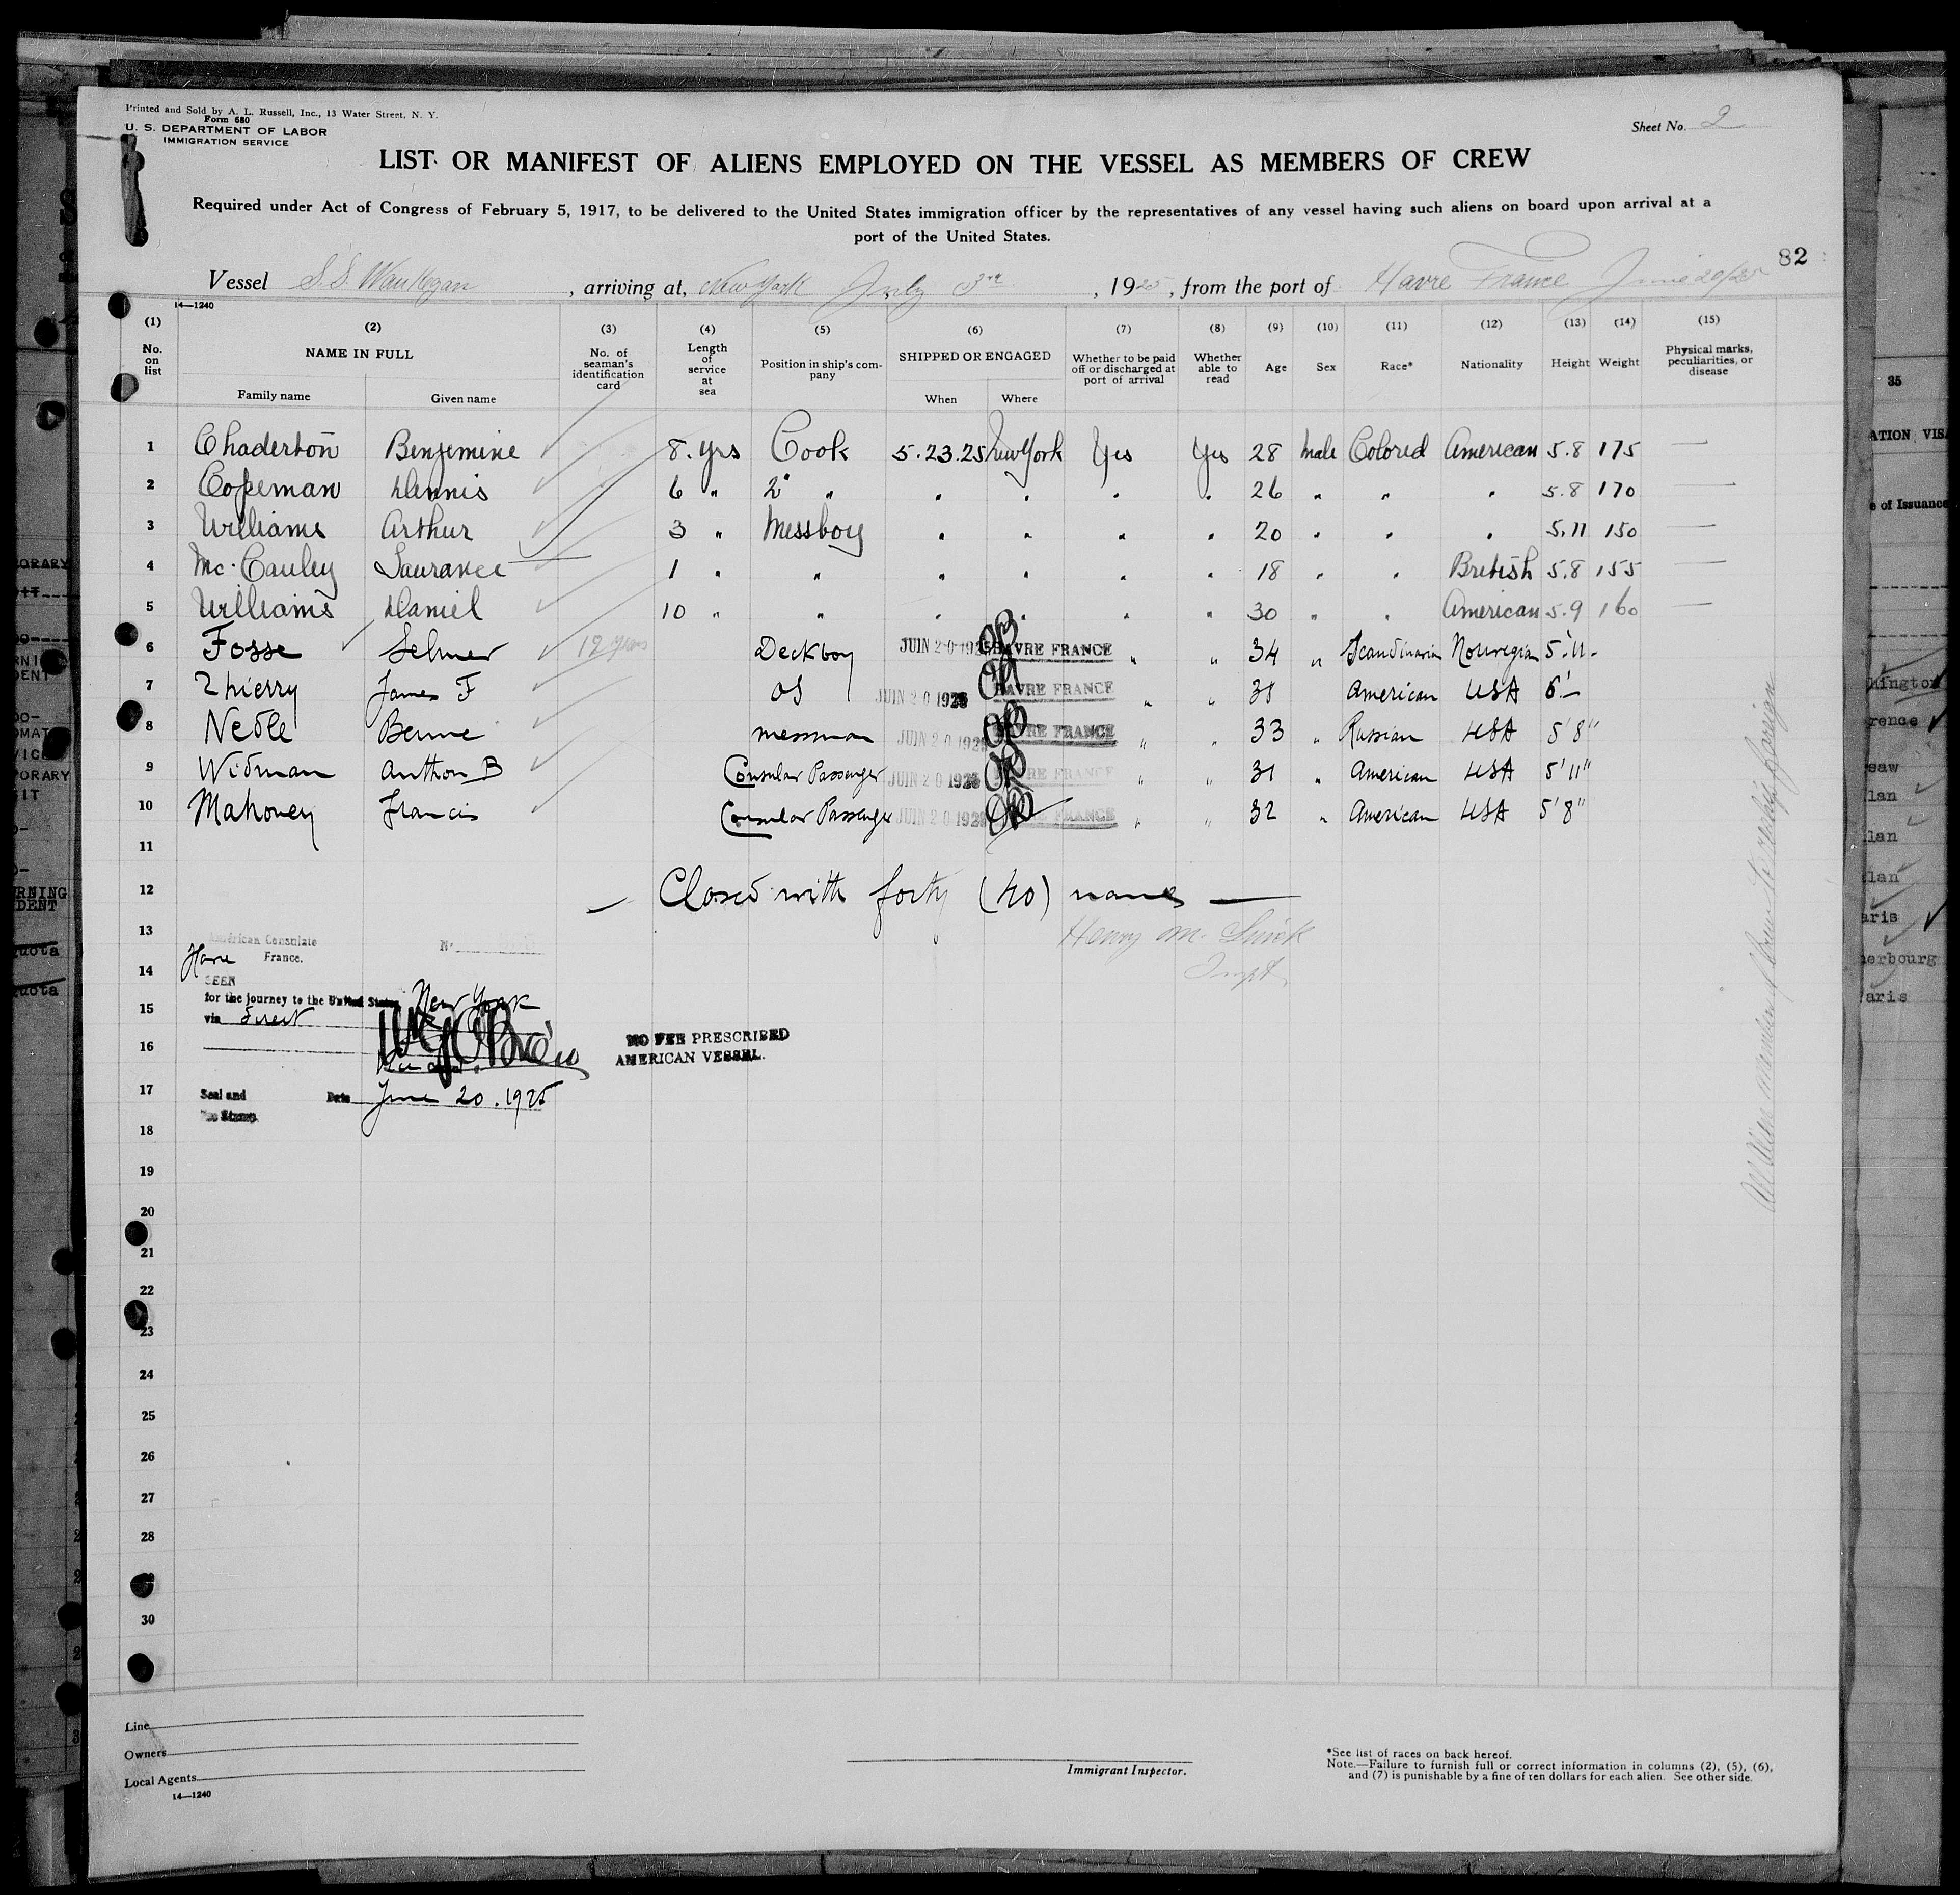 Printed and Sold by A. L. Russell, Inc., 13 Water Street, N. Y.
Form 680
U. S. DEPARTMENT OF LABOR
IMMIGRATION SERVICE
Sheet No. 2
LIST OR MANIFEST OF ALIENS EMPLOYED ON THE VESSEL AS MEMBERS OF CREW
Required under Act of Congress of February 5, 1917, to be delivered to the United States immigration officer by the representatives of any vessel having such aliens on board upon arrival at a
port of the United States.
82
Vessel S.S. Waukegan, arriving at, New York July 3rd, 1925, from the port of Havre France June 20/25
14—1240
(1) (2) (3) (4) (5) (6) (7) (8) (9) (10) (11) (12) (13) (14) (15)
No. on list NAME IN FULL Family name Given name No. of seaman's identification card Length of service at sea Position in ship's company SHIPPED OR ENGAGED When Where Whether to be paid off or discharged at port of arrival Whether able to read Age Sex Race* Nationality Height Weight Physical marks, peculiarities, or disease
1 Chaderton Benjemine 8. yrs Cook 5.23.25 New York Yes Yes 28 male Colored American 5.8 175 —
2 Copeman Dennis 6 " 2" " " " " " 26 " " " 5.8 170 —
3 Williams Arthur 3 " Messboy " " " " 20 " " " 5.11 150 —
4 Mc. Cauley Laurance 1 " " " " " " 18 " " British 5.8 155 —
5 Williams Daniel 10 " " " " " " 30 " " American 5.9 160 —
6 Fosse Selmer 12 years Deckboy JUIN 20 1925 HAVRE FRANCE " " 34 " Scandinavian Norwegian 5'.11.
7 Thierry James F OS JUIN 20 1925 HAVRE FRANCE " " 38 American USA 6'—
8 Nedle Bennie messman JUIN 20 1925 HAVRE FRANCE " " 33 " Russian USA 5'8"
9 Widman Anthon B Consular Passenger JUIN 20 1925 HAVRE FRANCE " " 31 " American USA 5'11"
10 Mahoney Francis Consular Passenger JUIN 20 1925 HAVRE FRANCE " " 32 " American USA 5'8"
11
12 — Closed with forty (40) names —
13 American Consulate No.
Henry M.
Havre France.
14
Inspt.
SEEN
for the journey to the United States New York
15
via direct
16
NO FEE PRESCRIBED
AMERICAN VESSEL.
17 Seal and Date June 20. 1925
Fee Stamp.
18
19
20
21
22
23
24
25
26
27
28
30
Line
Owners
Local Agents
14—1240
Immigrant Inspector.
*See list of races on back hereof.
Note.—Failure to furnish full or correct information in columns (2), (5), (6),
and (7) is punishable by a fine of ten dollars for each alien. See other side.
35
ATION VIS
e of Issuance
hington
rence
saw
lan
lan
lan
aris
herbourg
aris